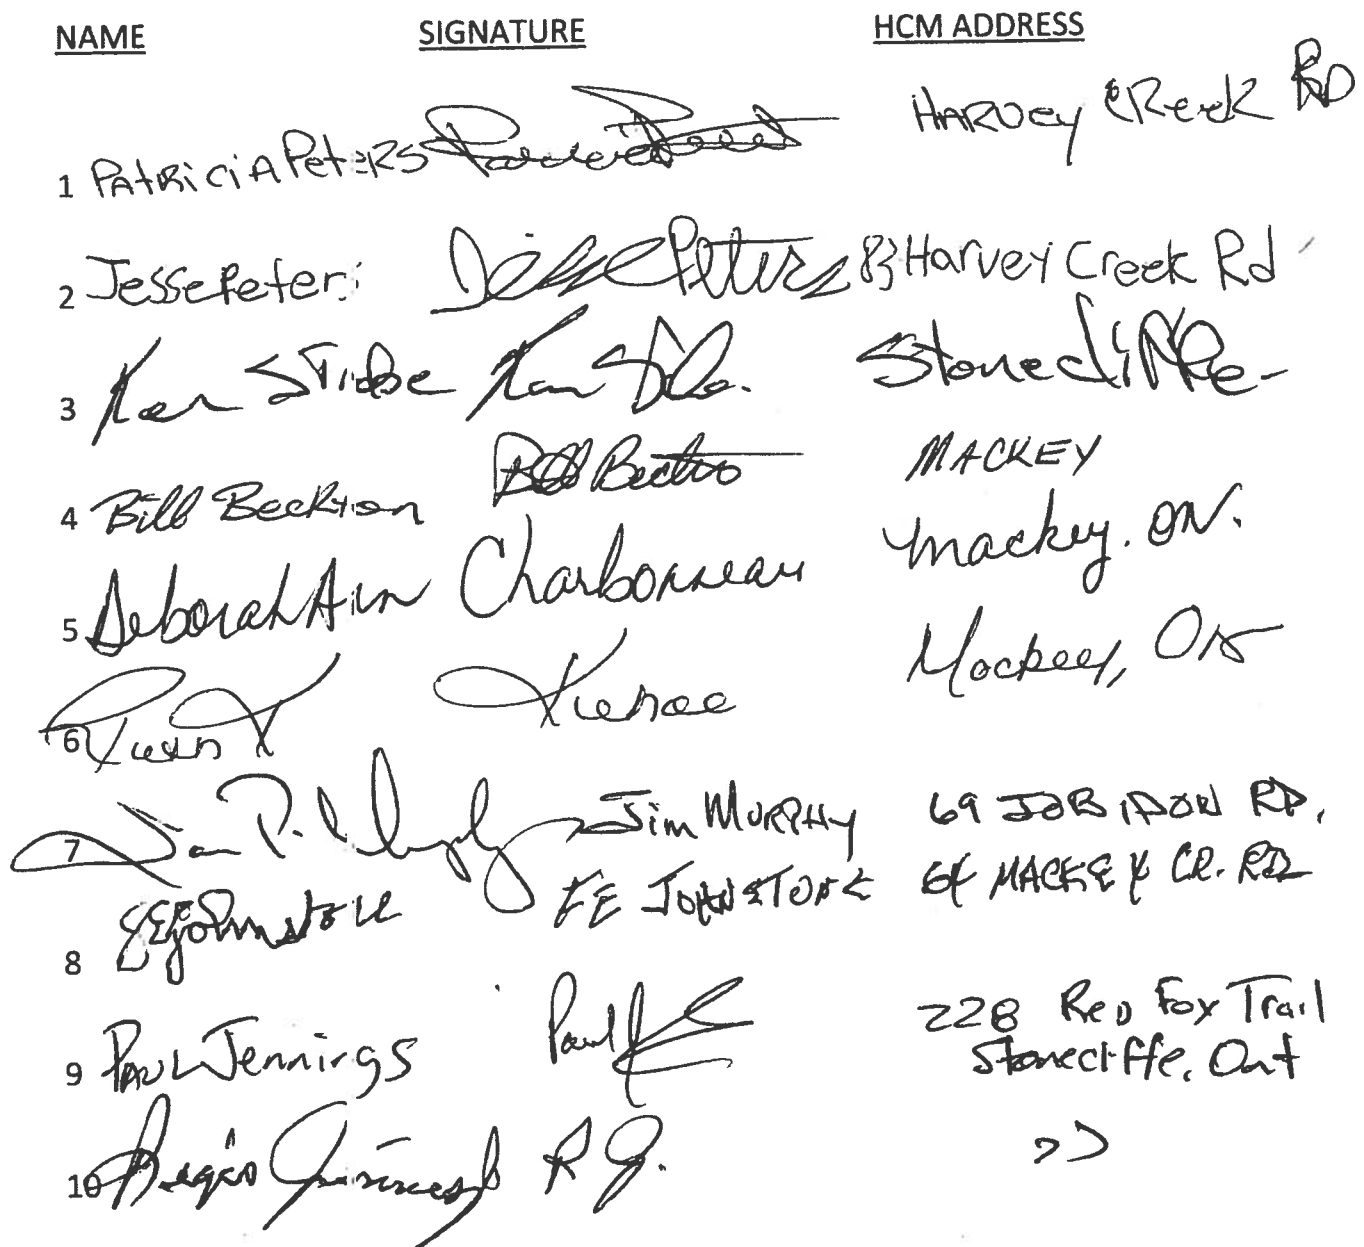 NAME SIGNATURE HCM ADDRESS
1 PATRICIA PETERS HARVEY CREEK RD
2 Jesse Peters Jesse Peters 83 Harvey Creek Rd
3 Ken Ken Stonecliffe
4 Bill Beckton Bill Beckton MACKEY
5 Deborah Ann Charbonneau Mackey. ON.
6 Mackey, ON
7 Jim P. Murphy Jim MURPHY 69 JOBIDON RD.
8 EE Johnstone EE JOHNSTONE 64 MACKEY CR. RD
9 PAUL Jennings Paul J 228 Red Fox Trail
Stonecliffe, Ont
10 R G. >>